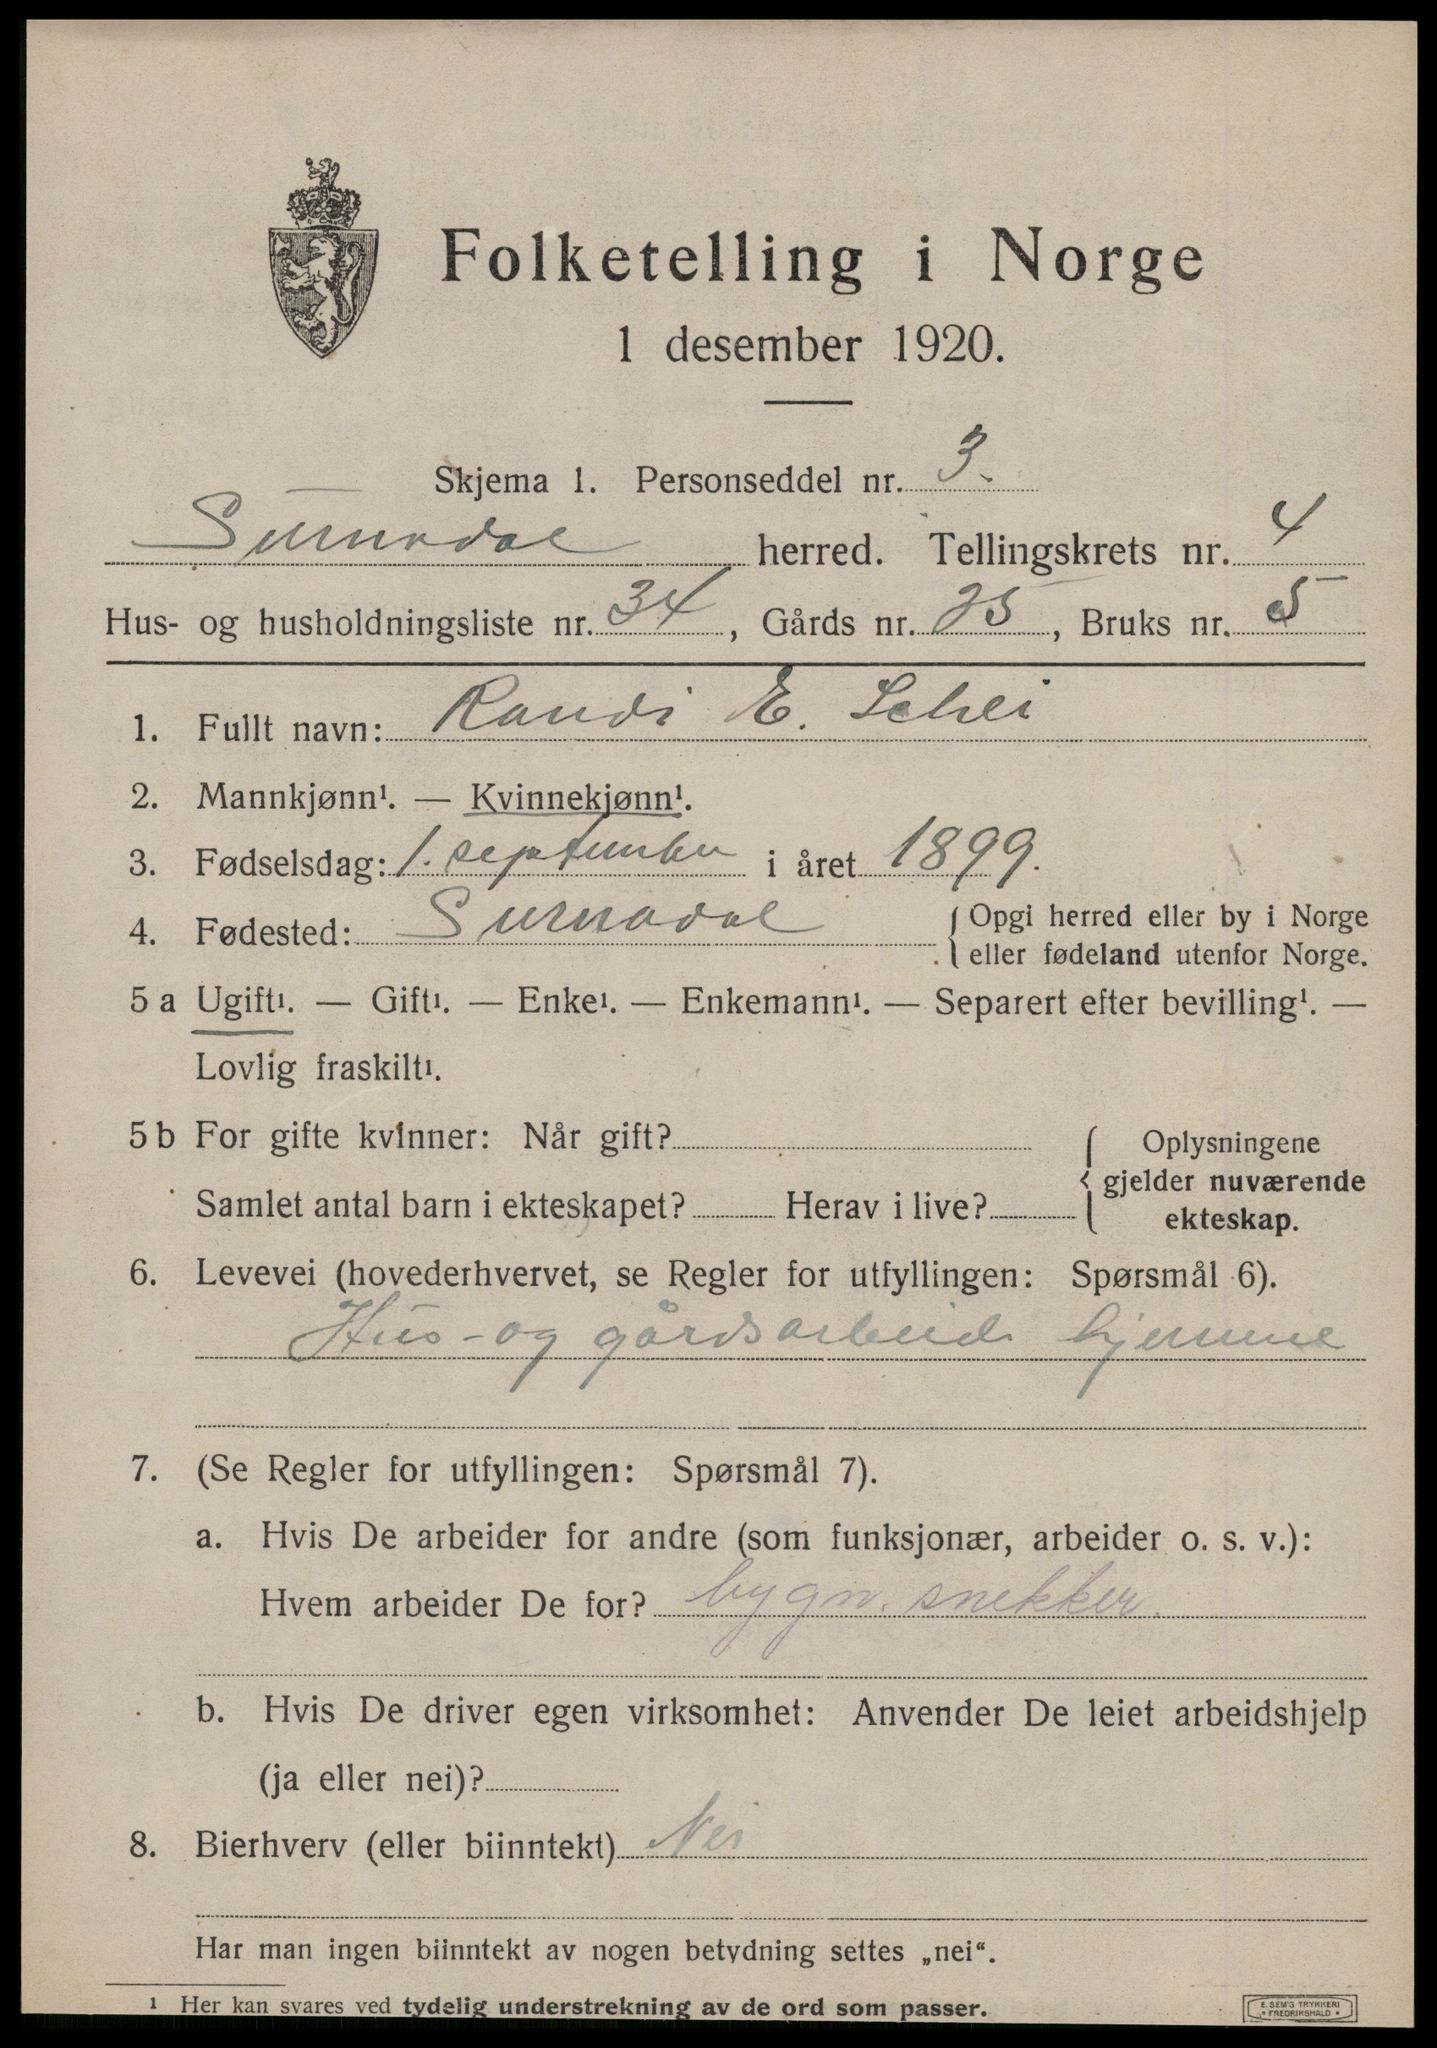 Folketelling i Norge
1 desember 1920.
Skjema 1. Personseddel nr. 3.
Surnadal herred. Tellingskrets nr. 4
Hus- og husholdningsliste nr. 34, Gårds nr. 25, Bruks nr. 5
1. Fullt navn: Randi E. Schei
2. Mannkjønn¹. — Kvinnekjønn¹.
3. Fødselsdag: 1. september i året 1899.
4. Fødested: Surnadal { Opgi herred eller by i Norge
eller fødeland utenfor Norge.
5 a Ugift¹. — Gift¹. — Enke¹. — Enkemann¹. — Separert efter bevilling¹. —
Lovlig fraskilt¹.
5 b For gifte kvinner: Når gift?
Samlet antal barn i ekteskapet? Herav i live?
{ Oplysningene
gjelder nuværende
ekteskap.
6. Levevei (hovederhvervet, se Regler for utfyllingen: Spørsmål 6).
Hus- og gårdsarbeid hjemme
7. (Se Regler for utfyllingen: Spørsmål 7).
a. Hvis De arbeider for andre (som funksjonær, arbeider o. s. v.):
Hvem arbeider De for? bygn. snekker.
b. Hvis De driver egen virksomhet: Anvender De leiet arbeidshjelp
(ja eller nei)?
8. Bierhverv (eller biinntekt) Nei
Har man ingen biinntekt av nogen betydning settes „nei“.
¹ Her kan svares ved tydelig understrekning av de ord som passer.
E. SEM'S TRYKKERI
• FREDRIKSHALD •